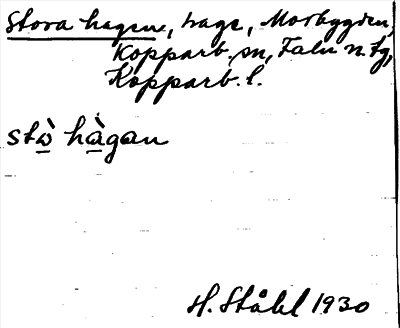 Stora hagen, hage, Morbygden,
Kopparb. sn, Falu n. tg,
Kopparb. l.
stò̱ hà̱gan
H. Ståhl 1930